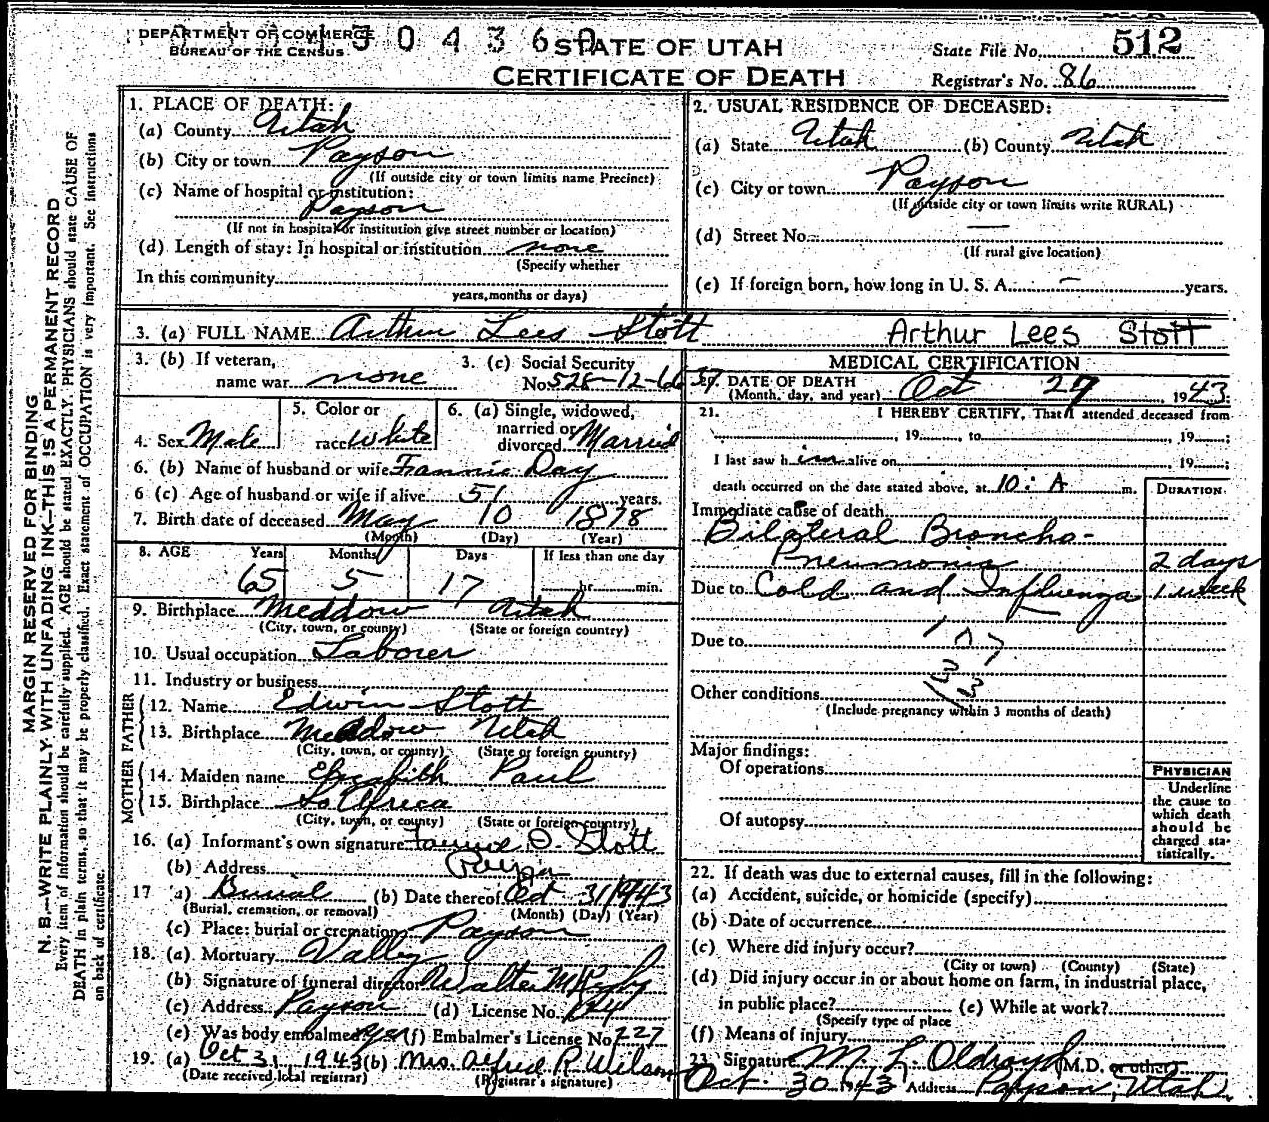 DEPARTMENT OF COMMERCE
BUREAU OF THE CENSUS
304360
STATE OF UTAH
CERTIFICATE OF DEATH
State File No. 512
Registrar's No. 86
MARGIN RESERVED FOR BINDING
N. B.—WRITE PLAINLY WITH UNFADING INK—THIS IS A PERMANENT RECORD
Every item of information should be carefully supplied. AGE should be stated EXACTLY. PHYSICIANS should state CAUSE OF
DEATH in plain terms, so that it may be properly classified. Exact statement of OCCUPATION is very important. See instructions
on back of certificate.
1. PLACE OF DEATH:
(a) County Utah
(b) City or town Payson
(If outside city or town limits name Precinct)
(c) Name of hospital or institution:
Payson
(If not in hospital or institution give street number or location)
(d) Length of stay: In hospital or institution none
(Specify whether
In this community
years, months or days)
2. USUAL RESIDENCE OF DECEASED:
(a) State Utah (b) County Utah
(c) City or town Payson
(If outside city or town limits write RURAL)
(d) Street No. —
(If rural give location)
(e) If foreign born, how long in U. S. A. — years.
3. (a) FULL NAME Arthur Lees Stott Arthur Lees Stott
3. (b) If veteran,
name war none
3. (c) Social Security
No. 528-12-6637
4. Sex Male
5. Color or
race White
6. (a) Single, widowed,
married or
divorced Married
6. (b) Name of husband or wife Fannie Day
6 (c) Age of husband or wife if alive 51 years.
7. Birth date of deceased May 10 1878
(Month) (Day) (Year)
8. AGE Years Months Days If less than one day
65 5 17 hr. min.
9. Birthplace Meddow Utah
(City, town, or county) (State or foreign country)
10. Usual occupation Laborer
11. Industry or business
FATHER
12. Name Edwin Stott
13. Birthplace Meadow Utah
(City, town, or county) (State or foreign country)
MOTHER
14. Maiden name Elizabeth Paul
15. Birthplace So Africa
(City, town, or county) (State or foreign country)
16. (a) Informant's own signature Fannie D. Stott
(b) Address Payson
17 a) Burial (b) Date thereof Oct 31 1943
(Burial, cremation, or removal) (Month) (Day) (Year)
(c) Place: burial or cremation Payson
18. (a) Mortuary Valley
(b) Signature of funeral director Walter M
(c) Address Payson (d) License No.
(e) Was body embalmed yes (f) Embalmer's License No. 227
19. (a) Oct 31 1943 (b) Mrs. Alfred R Wilson
(Date received local registrar) (Registrar's signature)
MEDICAL CERTIFICATION
20. DATE OF DEATH
(Month, day, and year) Oct 27, 1943.
21. I HEREBY CERTIFY, That I attended deceased from
, 19 , to , 19 ;
I last saw him alive on , 19 ;
death occurred on the date stated above, at 10: A m.
DURATION
Immediate cause of death
Bilateral Broncho-
Pneumonia 2 days
Due to Cold and Influenza 1 week
Due to 107
33
Other conditions
(Include pregnancy within 3 months of death)
Major findings:
Of operations
Of autopsy
PHYSICIAN
Underline
the cause to
which death
should be
charged sta-
tistically.
22. If death was due to external causes, fill in the following:
(a) Accident, suicide, or homicide (specify)
(b) Date of occurrence
(c) Where did injury occur?
(City or town) (County) (State)
(d) Did injury occur in or about home on farm, in industrial place,
in public place? (e) While at work?
(Specify type of place
(f) Means of injury
23 Signature M. L. Oldroyd M.D. or other
Oct. 30 1943 Address Payson, Utah.